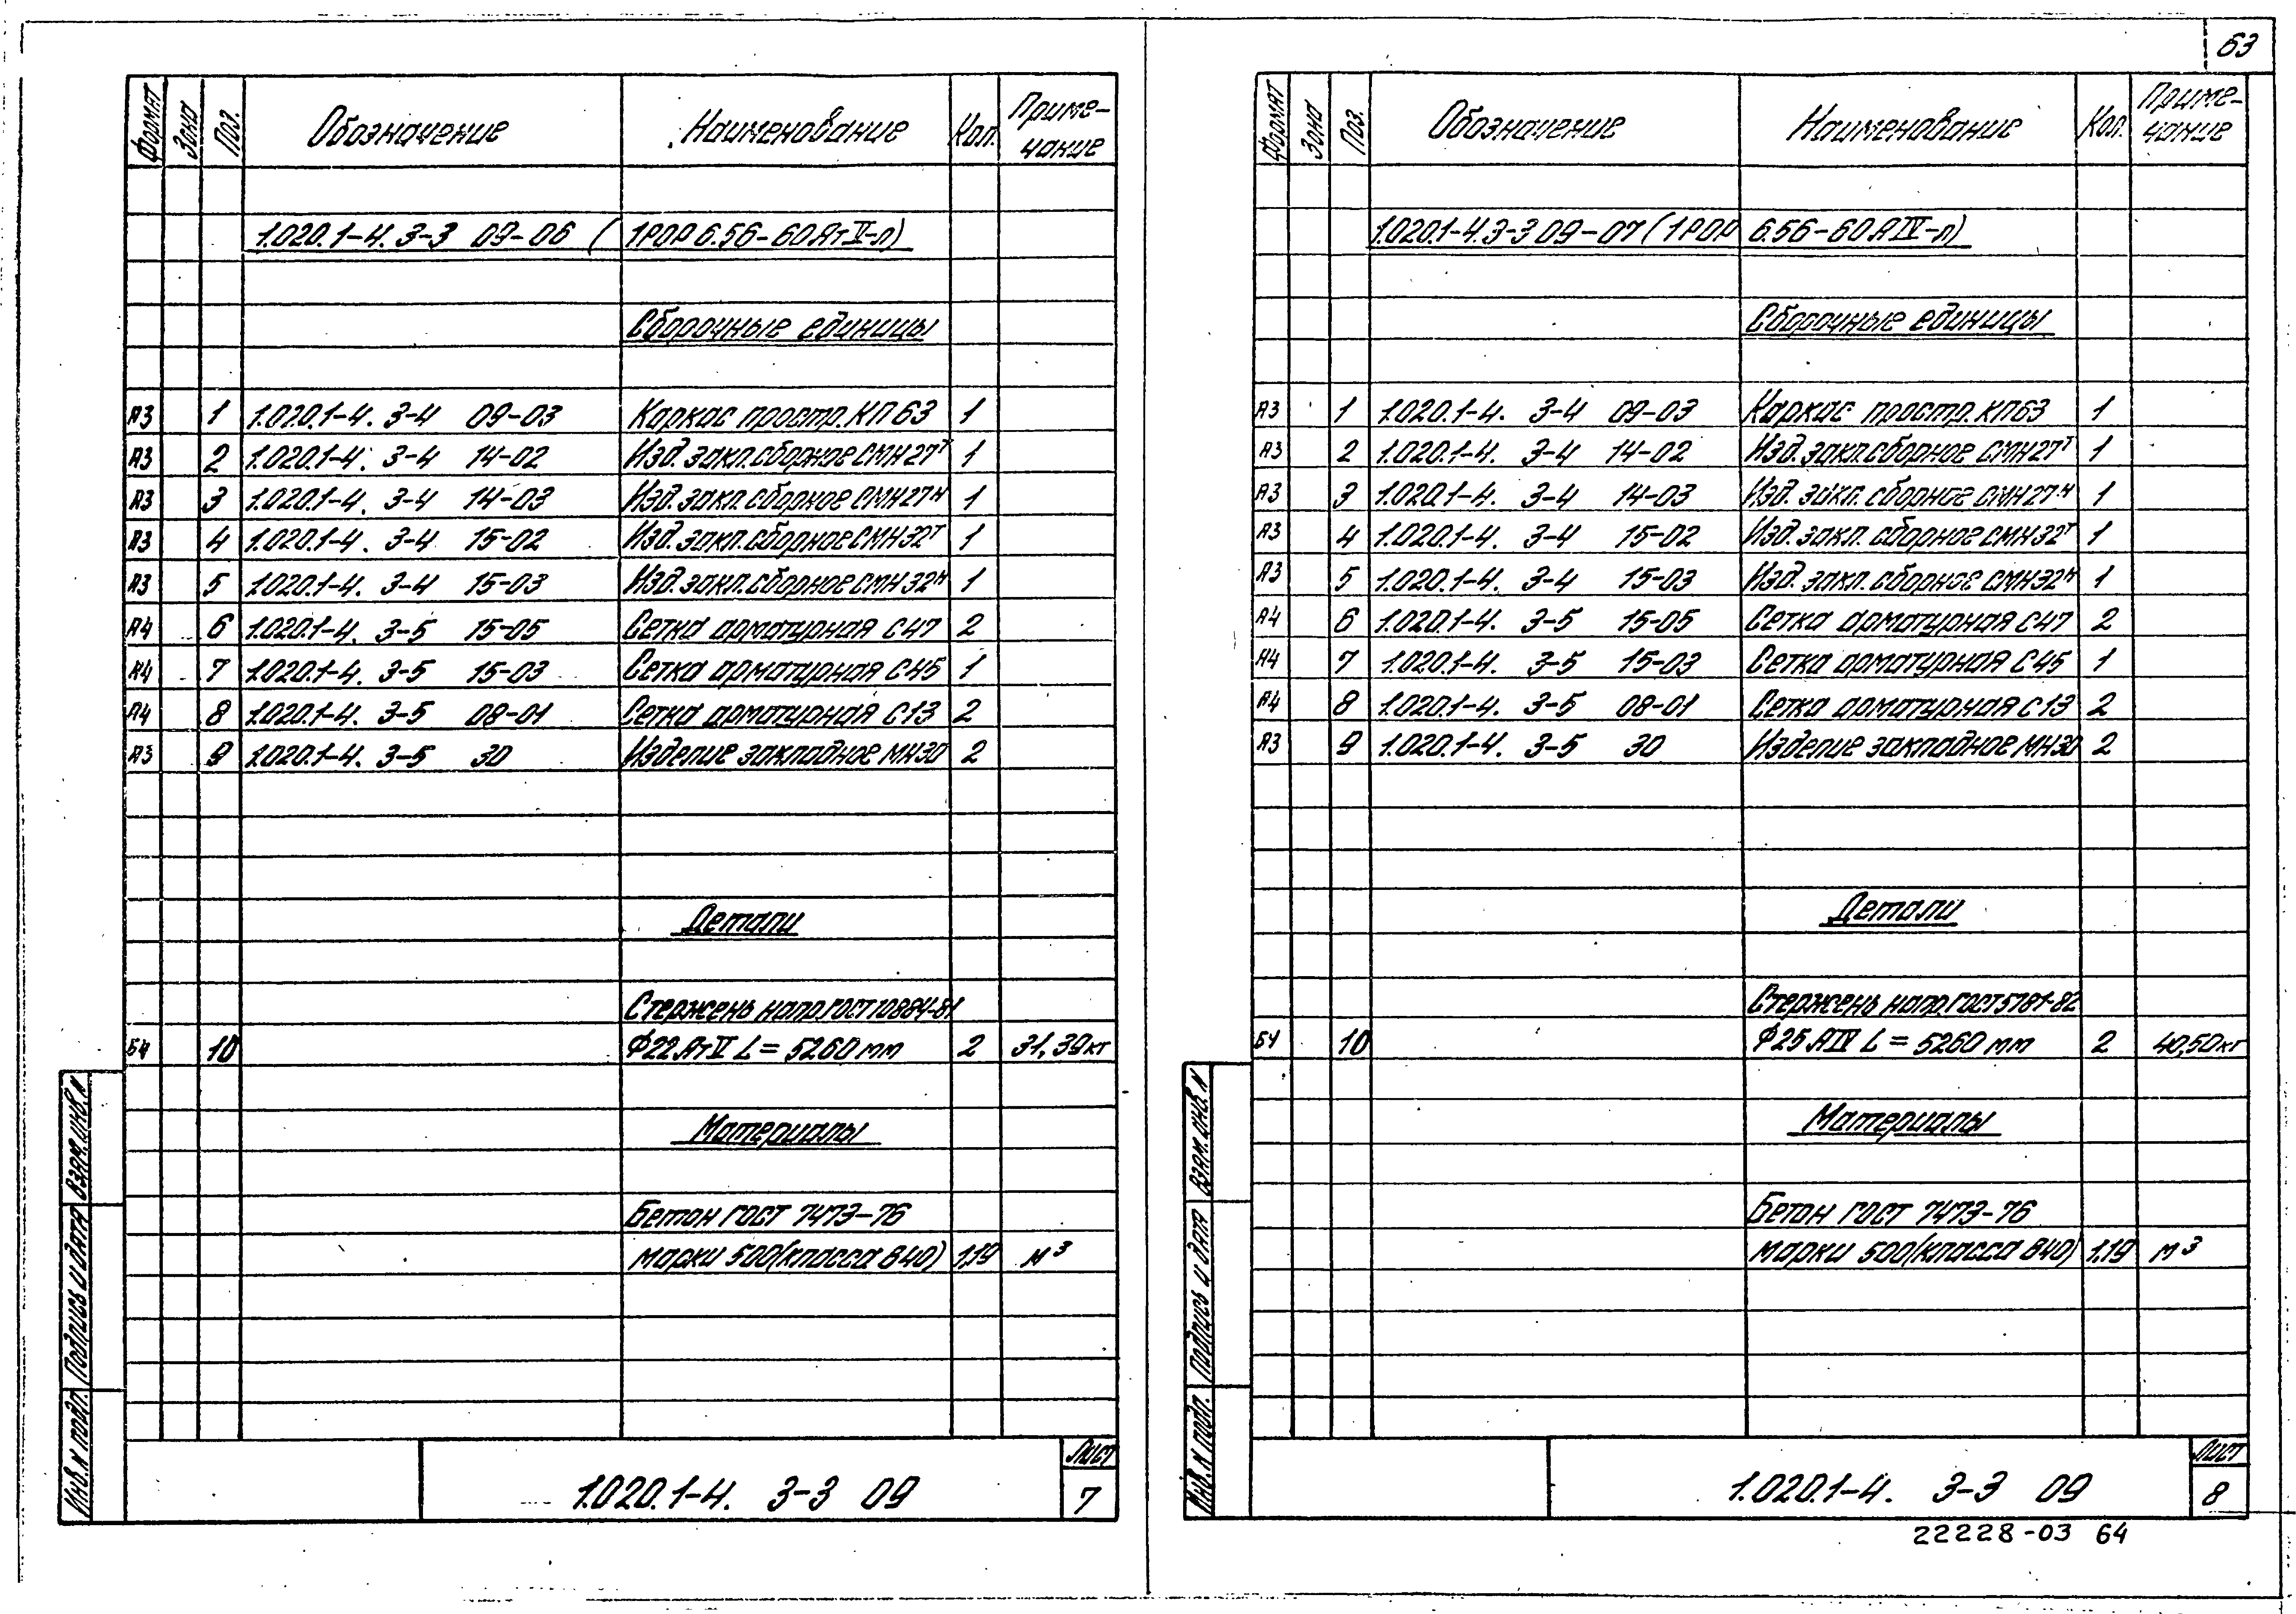 63
Формат Зона Поз. Обозначение Наименование Кол. Приме-
чание
1.020.1-4. 3-3 09-06 ( 1РОР 6.56-60АтV-л)
Сборочные единицы
А3 1 1.020.1-4. 3-4 09-03 Каркас простр. КП63 1
А3 2 1.020.1-4. 3-4 14-02 Изд. закл. сборное СМН27т 1
А3 3 1.020.1-4. 3-4 14-03 Изд. закл. сборное СМН27н 1
А3 4 1.020.1-4. 3-4 15-02 Изд. закл. сборное СМН32т 1
А3 5 1.020.1-4. 3-4 15-03 Изд. закл. сборное СМН32н 1
А4 6 1.020.1-4. 3-5 15-05 Сетка арматурная С47 2
А4 7 1.020.1-4. 3-5 15-03 Сетка арматурная С45 1
А4 8 1.020.1-4. 3-5 08-01 Сетка арматурная С13 2
А3 9 1.020.1-4. 3-5 30 Изделие закладное МН30 2
Детали
Стержень напр. ГОСТ 10884-81
БЧ 10 Ф22АтV L=5260 мм 2 31,39кг
Материалы
Бетон ГОСТ 7473-76
марки 500(класса В40) 1,19 м³
Инв. N подл. Подпись и дата Взам. инв. N
1.020.1-4. 3-3 09
Лист
7
Формат Зона Поз. Обозначение Наименование Кол. Приме-
чание
1.020.1-4. 3-3 09-07 (1РОР 6.56-60АIV-л)
Сборочные единицы
А3 1 1.020.1-4. 3-4 09-03 Каркас простр. КП63 1
А3 2 1.020.1-4. 3-4 14-02 Изд. закл. сборное СМН27т 1
А3 3 1.020.1-4. 3-4 14-03 Изд. закл. сборное СМН27н 1
А3 4 1.020.1-4. 3-4 15-02 Изд. закл. сборное СМН32т 1
А3 5 1.020.1-4. 3-4 15-03 Изд. закл. сборное СМН32н 1
А4 6 1.020.1-4. 3-5 15-05 Сетка арматурная С47 2
А4 7 1.020.1-4. 3-5 15-03 Сетка арматурная С45 1
А4 8 1.020.1-4. 3-5 08-01 Сетка арматурная С13 2
А3 9 1.020.1-4. 3-5 30 Изделие закладное МН30 2
Детали
Стержень напр. ГОСТ 5781-82
БЧ 10 Ф25АIV L=5260 мм 2 40,50кг
Материалы
Бетон ГОСТ 7473-76
марки 500(класса В40) 1,19 м³
Инв. N подл. Подпись и дата Взам. инв. N
1.020.1-4. 3-3 09
Лист
8
22228-03 64